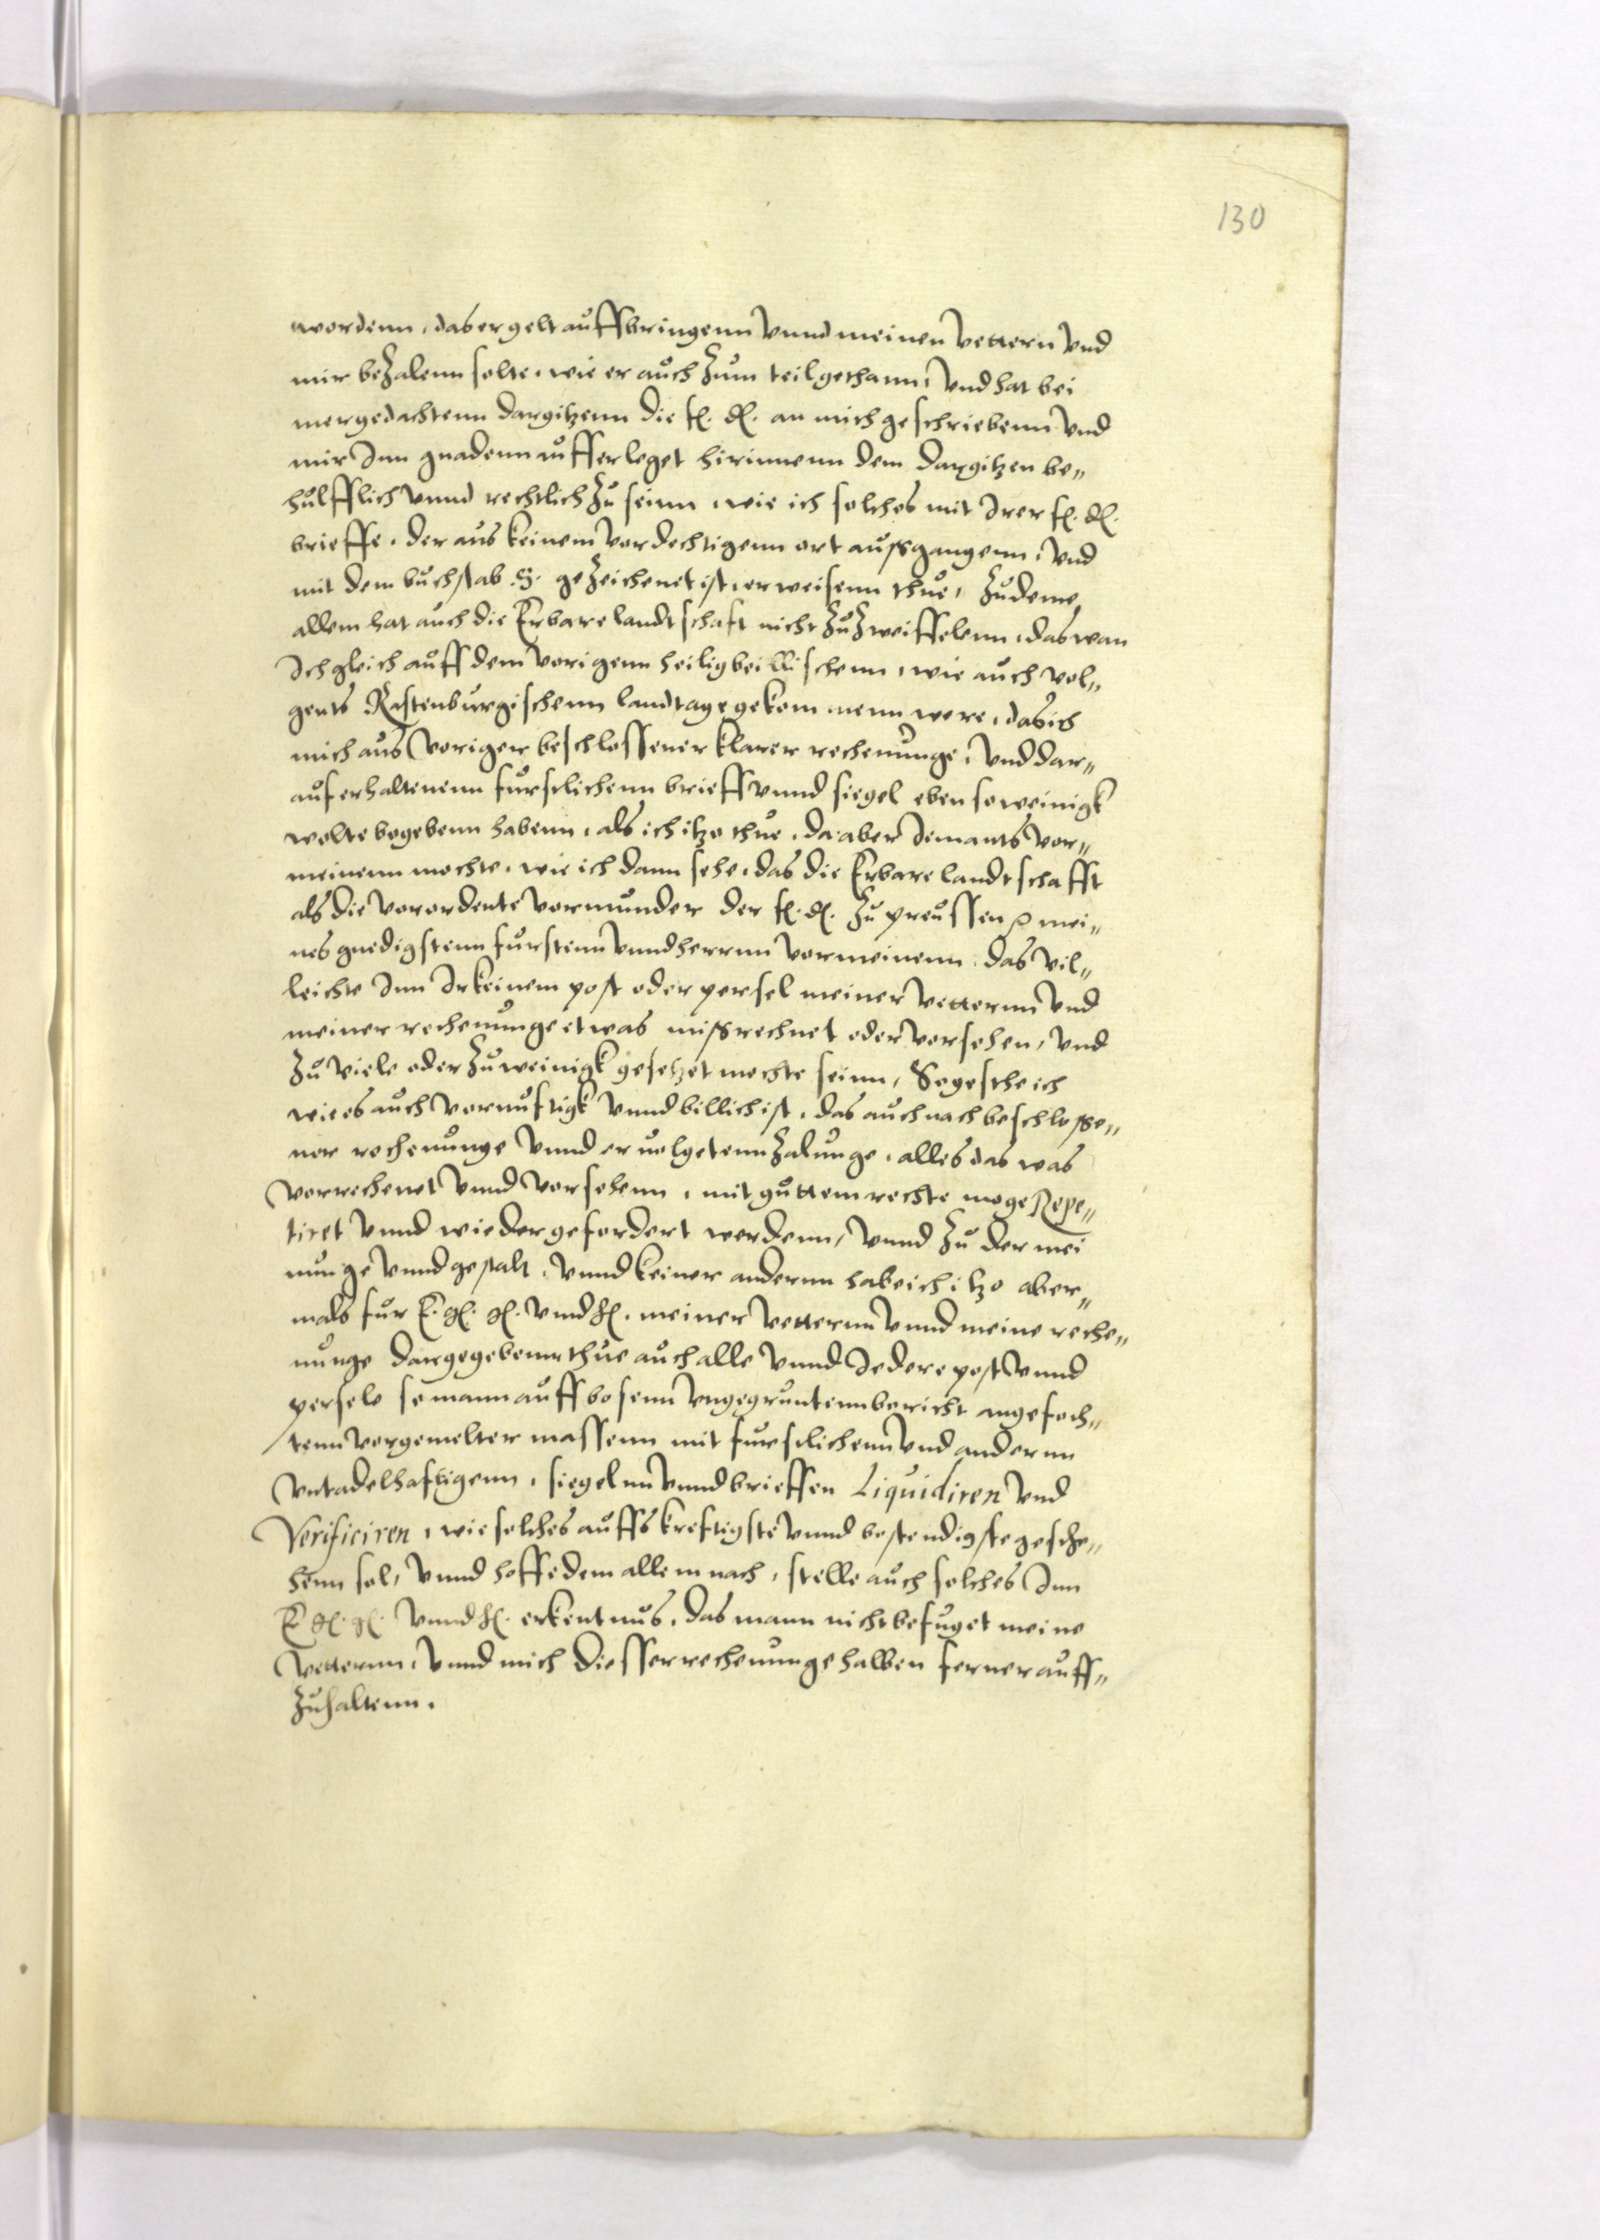 130
wordenn, das er gelt auffbringenn vnnd meinen vettern vnd
mir bezalenn solte, wie er auch zum teil gethann, vnd hat bei
mergedachtenn dargitzenn die f. d. an mich geschriebenn vnd
mir Inn gnadenn aufferleget hirinnenn dem dargitzen be„
hulfflich vnnd rechtlich zu seinn, wie ich solches mit Irer f. d.
brieffe, der aus keinem vordechtigenn ort außgangenn, vnd
mit dem buchstab .G. gezeichenet ist, erweisenn thue, zu deme
allem hat auch die Erbare landtschaft nicht zu zweiffelenn, das wan
Ich gleich auff dem vorigenn heiligbeillischenn, wie auch vol„
gents Rastenburgischenn landtage gekommenn were, das ich
mich aus voriger beschlossener klarer rechenunge, vnd dar„
auf erhaltenenn furstlichenn brieff vnnd siegel eben so weinigk
wolte begebenn habenn, als ich itzo thue, da aber Iemants vor„
meinenn mochte, wie ich dann sehe, das die Erbare landtschafft
als die verordente vormunder der f. d. zu preussen mei„
nes gnedigstenn furstenn vnnd herrnn vormeinenn, das vil„
leichte Inn Irkeinem post oder persel meiner vetternn vnd
meiner rechenunge etwas mißrechnet oder vorsehen, vnd
zu viele oder zu weinigk gesetzet mochte seinn, So gestehe ich
wie es auch vornuftigk vnnd billich ist, das auch nach beschloße„
ner rechenunge vnnd eruolgetenn zalunge, alles das was
vorrechenet vnnd vorsehenn, mit guttem rechte moge Repe„
tiret vnnd wiedergefordert werdenn, vnnd zu der mei
nunge vnnd gestalt, vnnd keiner andernn habe ich itzo aber„
mals fur E. g. g. vnnd h. meiner vetternn vnnd meine reche„
nunge dargegebenn, thue auch alle vnnd Iedere post vnnd
persele so mann auff bosenn vngegruntenn bericht angefoch„
tenn vorgemelter massenn mit furstlichenn vnd andernn
vntadelhaftigenn, siegelnn vnnd brieffen Liquidiren vnd
Verificiren, wie solches auffs kreftigste vnnd bestendigste gesche„
henn sol, vnnd hoffe dem allem nach, stelle auch solches Inn
E. g. g. vnnd h. erkentnus, das mann nicht befuget meine
vetternn, vnnd mich diesser rechenunge halben ferner auff„
zuhaltenn.